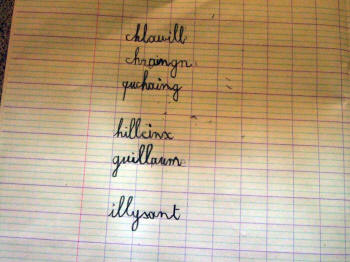 chlawill
chraingn
quchaing
hillcinx
guillaume
illysant